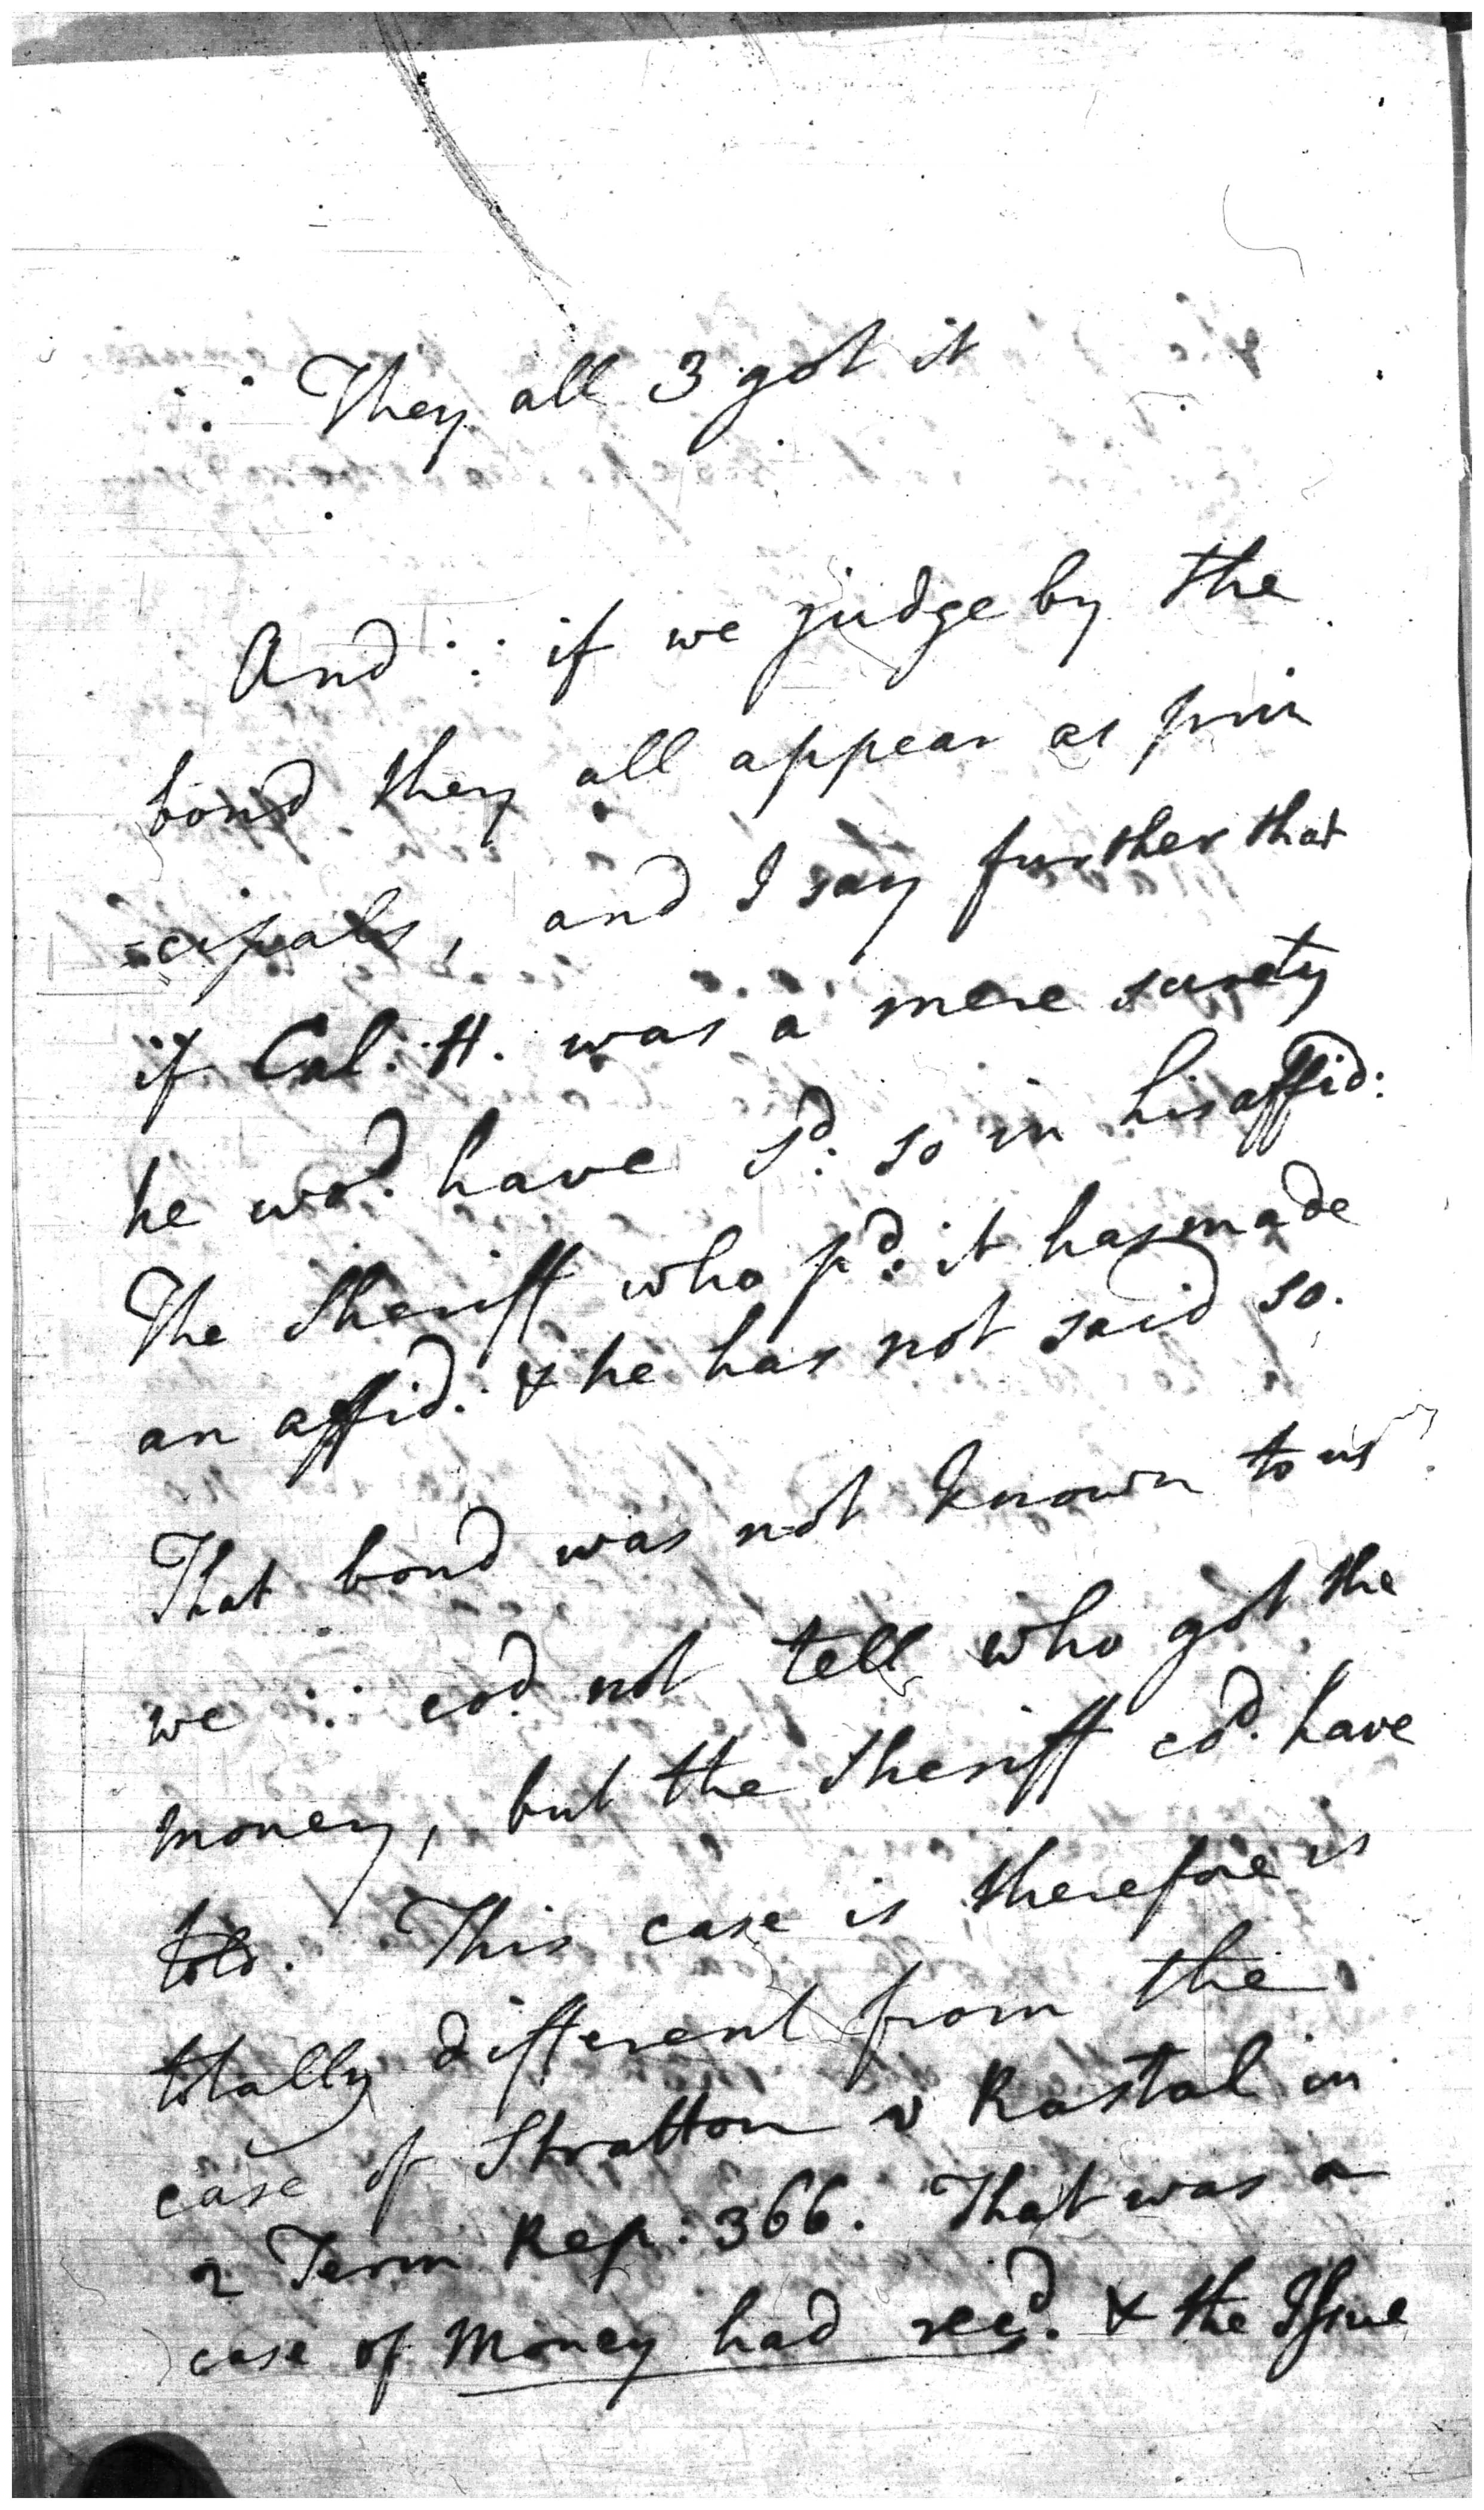 ∴ They all 3 got it
And ∴ if we judge by the
bond they all appear as prin
=cipals, and I say further that
if Col. H. was a mere surety
he wod. have sd: so in his affid:
The Sheriff who pd: it has made
an affid: & he has not said so.
That bond was not known to us
we ∴ cod. not tell who got the
money, but the Sheriff cd. have
told. This case is therefore is
totally different from the
case of Stratton v Rastal in
2 Term Rep: 366. That was a
case of Money had recd. & the Issue